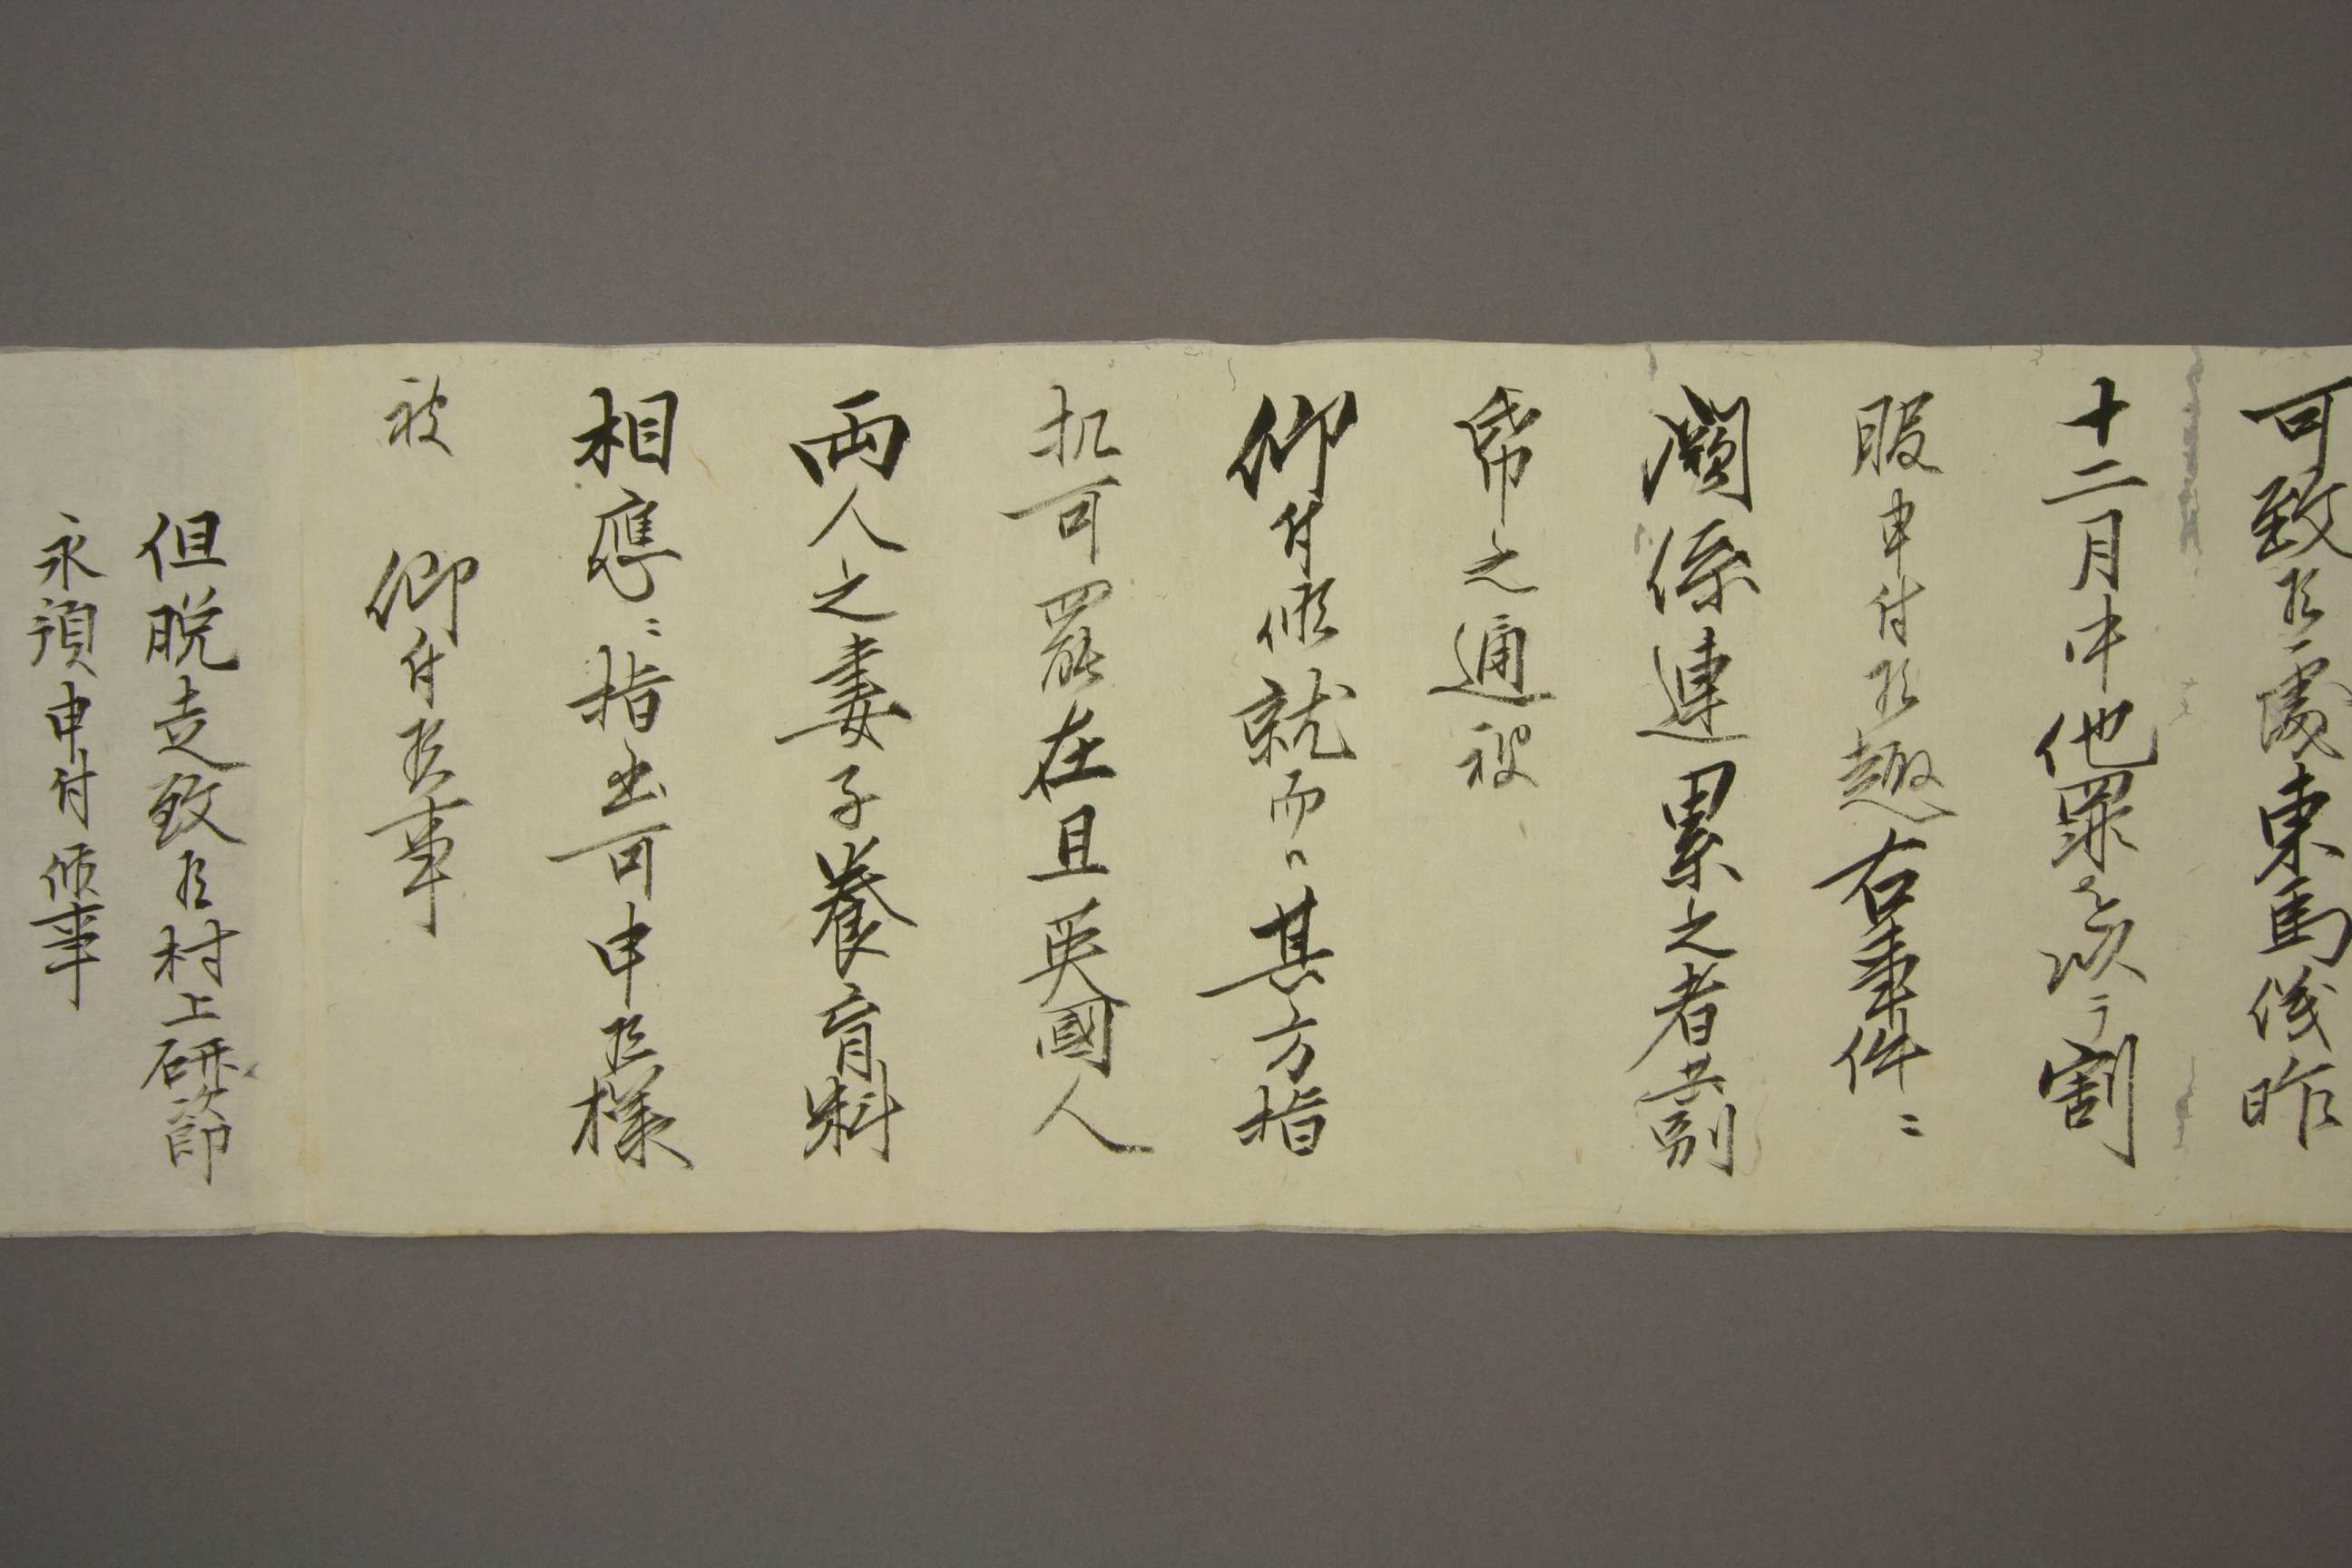 可致召處東馬儀昨
十二月中他罪を以テ割
腹申付召趣右事件ニ
関係連累之者共別
帋之通被
仰付候就而ハ其方指
扣可罷在且英國人
両人之妻子養育料
相應ニ指出可申召様
被　仰付召事
但脱走致召村上研節
永預申付候事